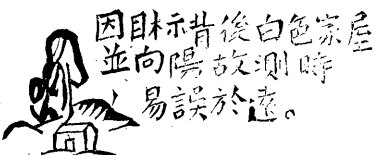 因目标示背後白色家屋
並向陽故测時
易誤於遠。